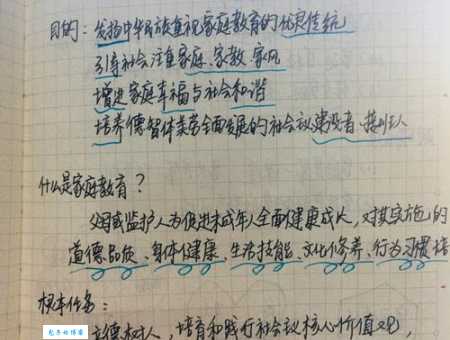 目的：发扬中华民族重视家庭教育的优良传统
引导社会注重家庭、家教、家风
增进家庭幸福与社会和谐
培养德智体美劳全面发展的社会主义建设者、接班人
什么是家庭教育？
父母或监护人为促进未成年人全面健康成长，对其实施的
道德品质、身体健康、生活技能、文化修养、行为习惯培
根本任务：
立德树人，培育和践行社会主义核心价值观，